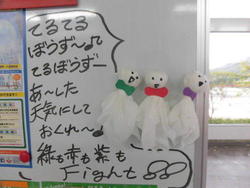 てるてる
ぼうず～♪
てるぼうずー
あ～した
天気にして
おくれ～♪
緑も赤も紫も
Fight